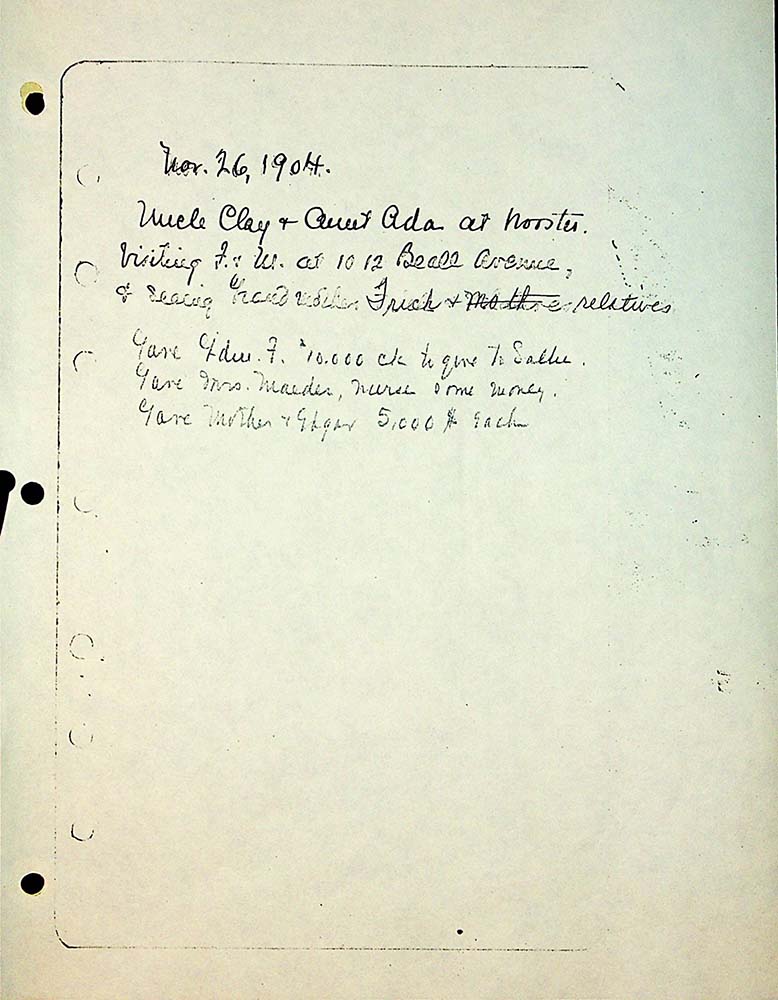 Nov. 26, 1904.
Uncle Clay & Aunt Ada at Wooster.
Visiting F. & M. at 1012 Beall Avenue,
& seeing Grandmother Frick & Mothre relatives
Gave Edw. F. $10.000 ck to give to Sallie.
Gave Mrs. Maeder, nurse some money.
Gave Mother & Edgar 5,000 $ each